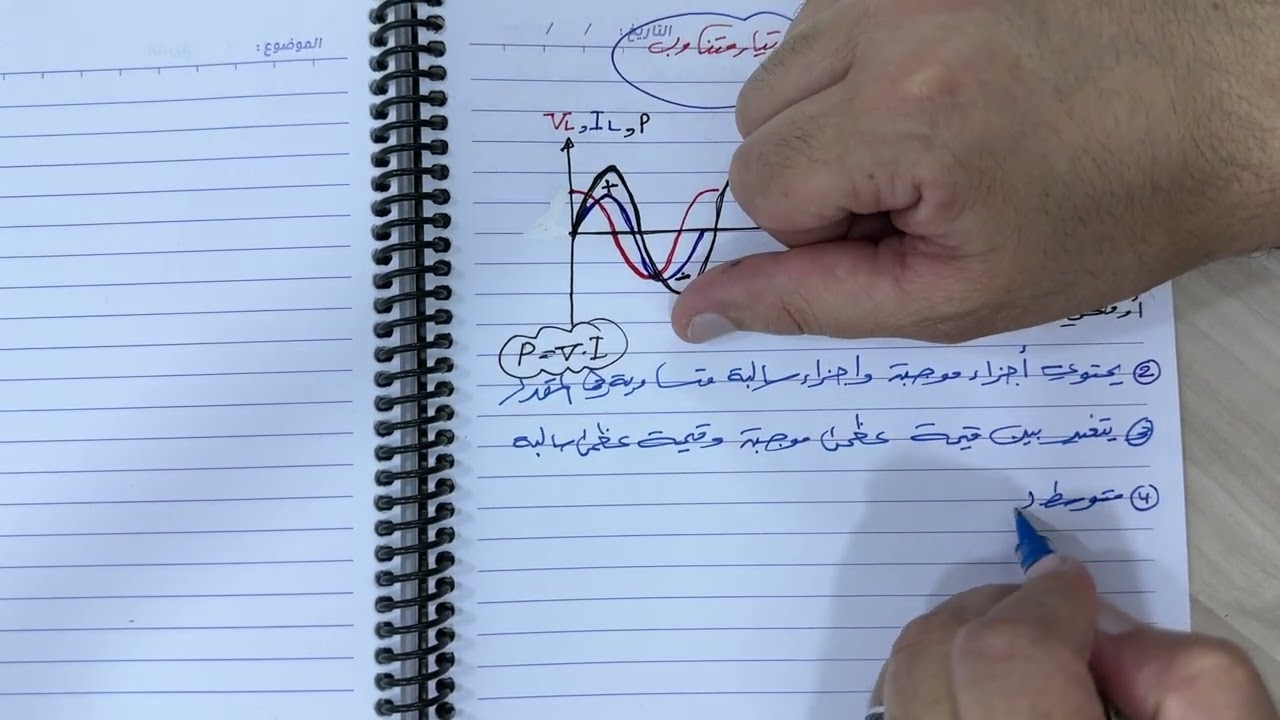 الموضوع:
التاريخ: / /
تيار متناوب
VL, IL, P
+
-
P=V·I
② يحتوي أجزاء موجبة واجزاء سالبة متساوية في المقدار
③ يتغير بين قيمة عظمى موجبة وقيمة عظمى سالبة
④ متوسط